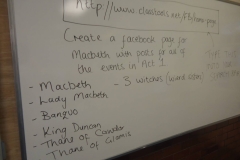 http://www.classtools.net/FB/home-page
Create a facebook page for
Macbeth with posts for all of
the events in Act 1
- Macbeth - 3 witches (weird sisters)
- Lady Macbeth
- Banquo
- King Duncan
- Thane of Cawdor
- Thane of Glamis